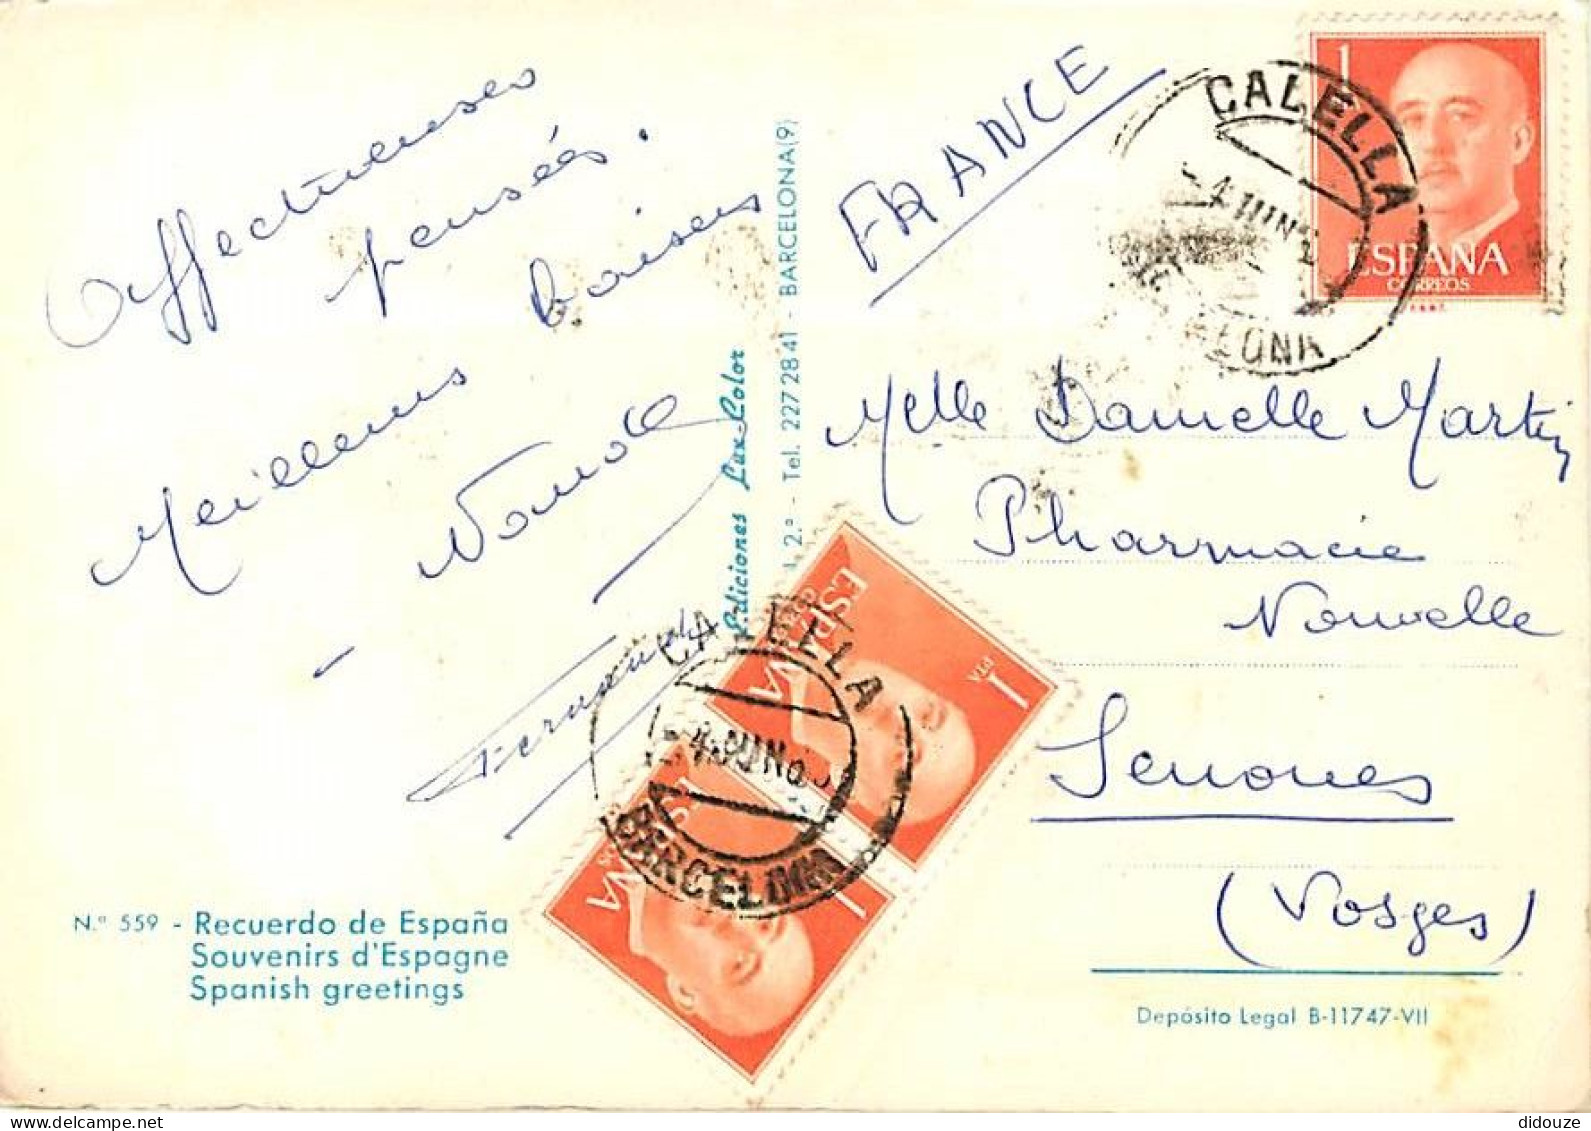 Affectueuses
pensées.
Meilleurs baisers
Fernande
N.º 559 - Recuerdo de España
Souvenirs d'Espagne
Spanish greetings
Ediciones Lux-Color
2.º - Tel. 227 28 41 - BARCELONA (9)
FRANCE
1
ESPAÑA
CORREOS
CALELLA
Melle Danielle Martin
Pharmacie
Nouvelle
Senones
(Vosges)
Depósito Legal B-11747-VII
1 PTA
ESPAÑA
CALELLA
-4 JUN
BARCELONA
1
didouze